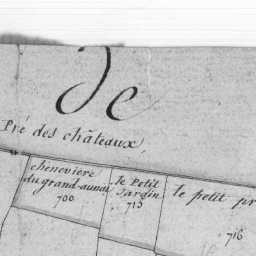 de
Pré des châteaux,
chenoviere
du grand-aunai
700
le Petit
Jardin
713
le petit pr
716